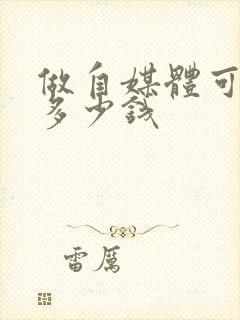 做自媒體可
多少錢
雷厲